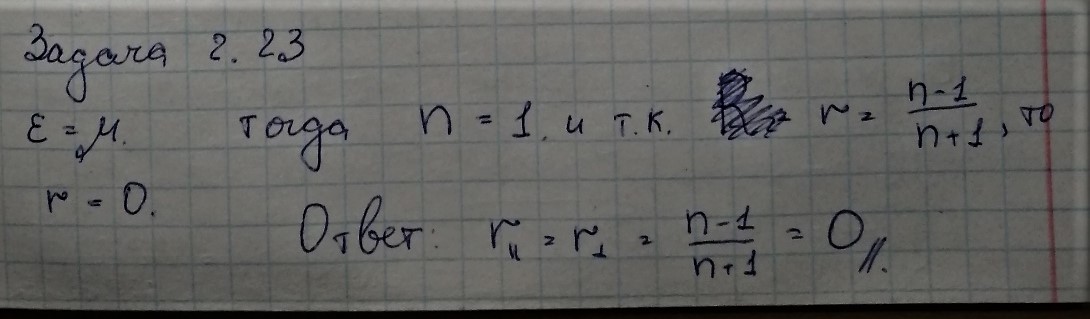 Задача 2.23
ε = μ. тогда n = 1. и т.к. r = n-1/n+1, то
r = 0.
Ответ: r_II = r_⊥ = n-1/n+1 = 0 //.